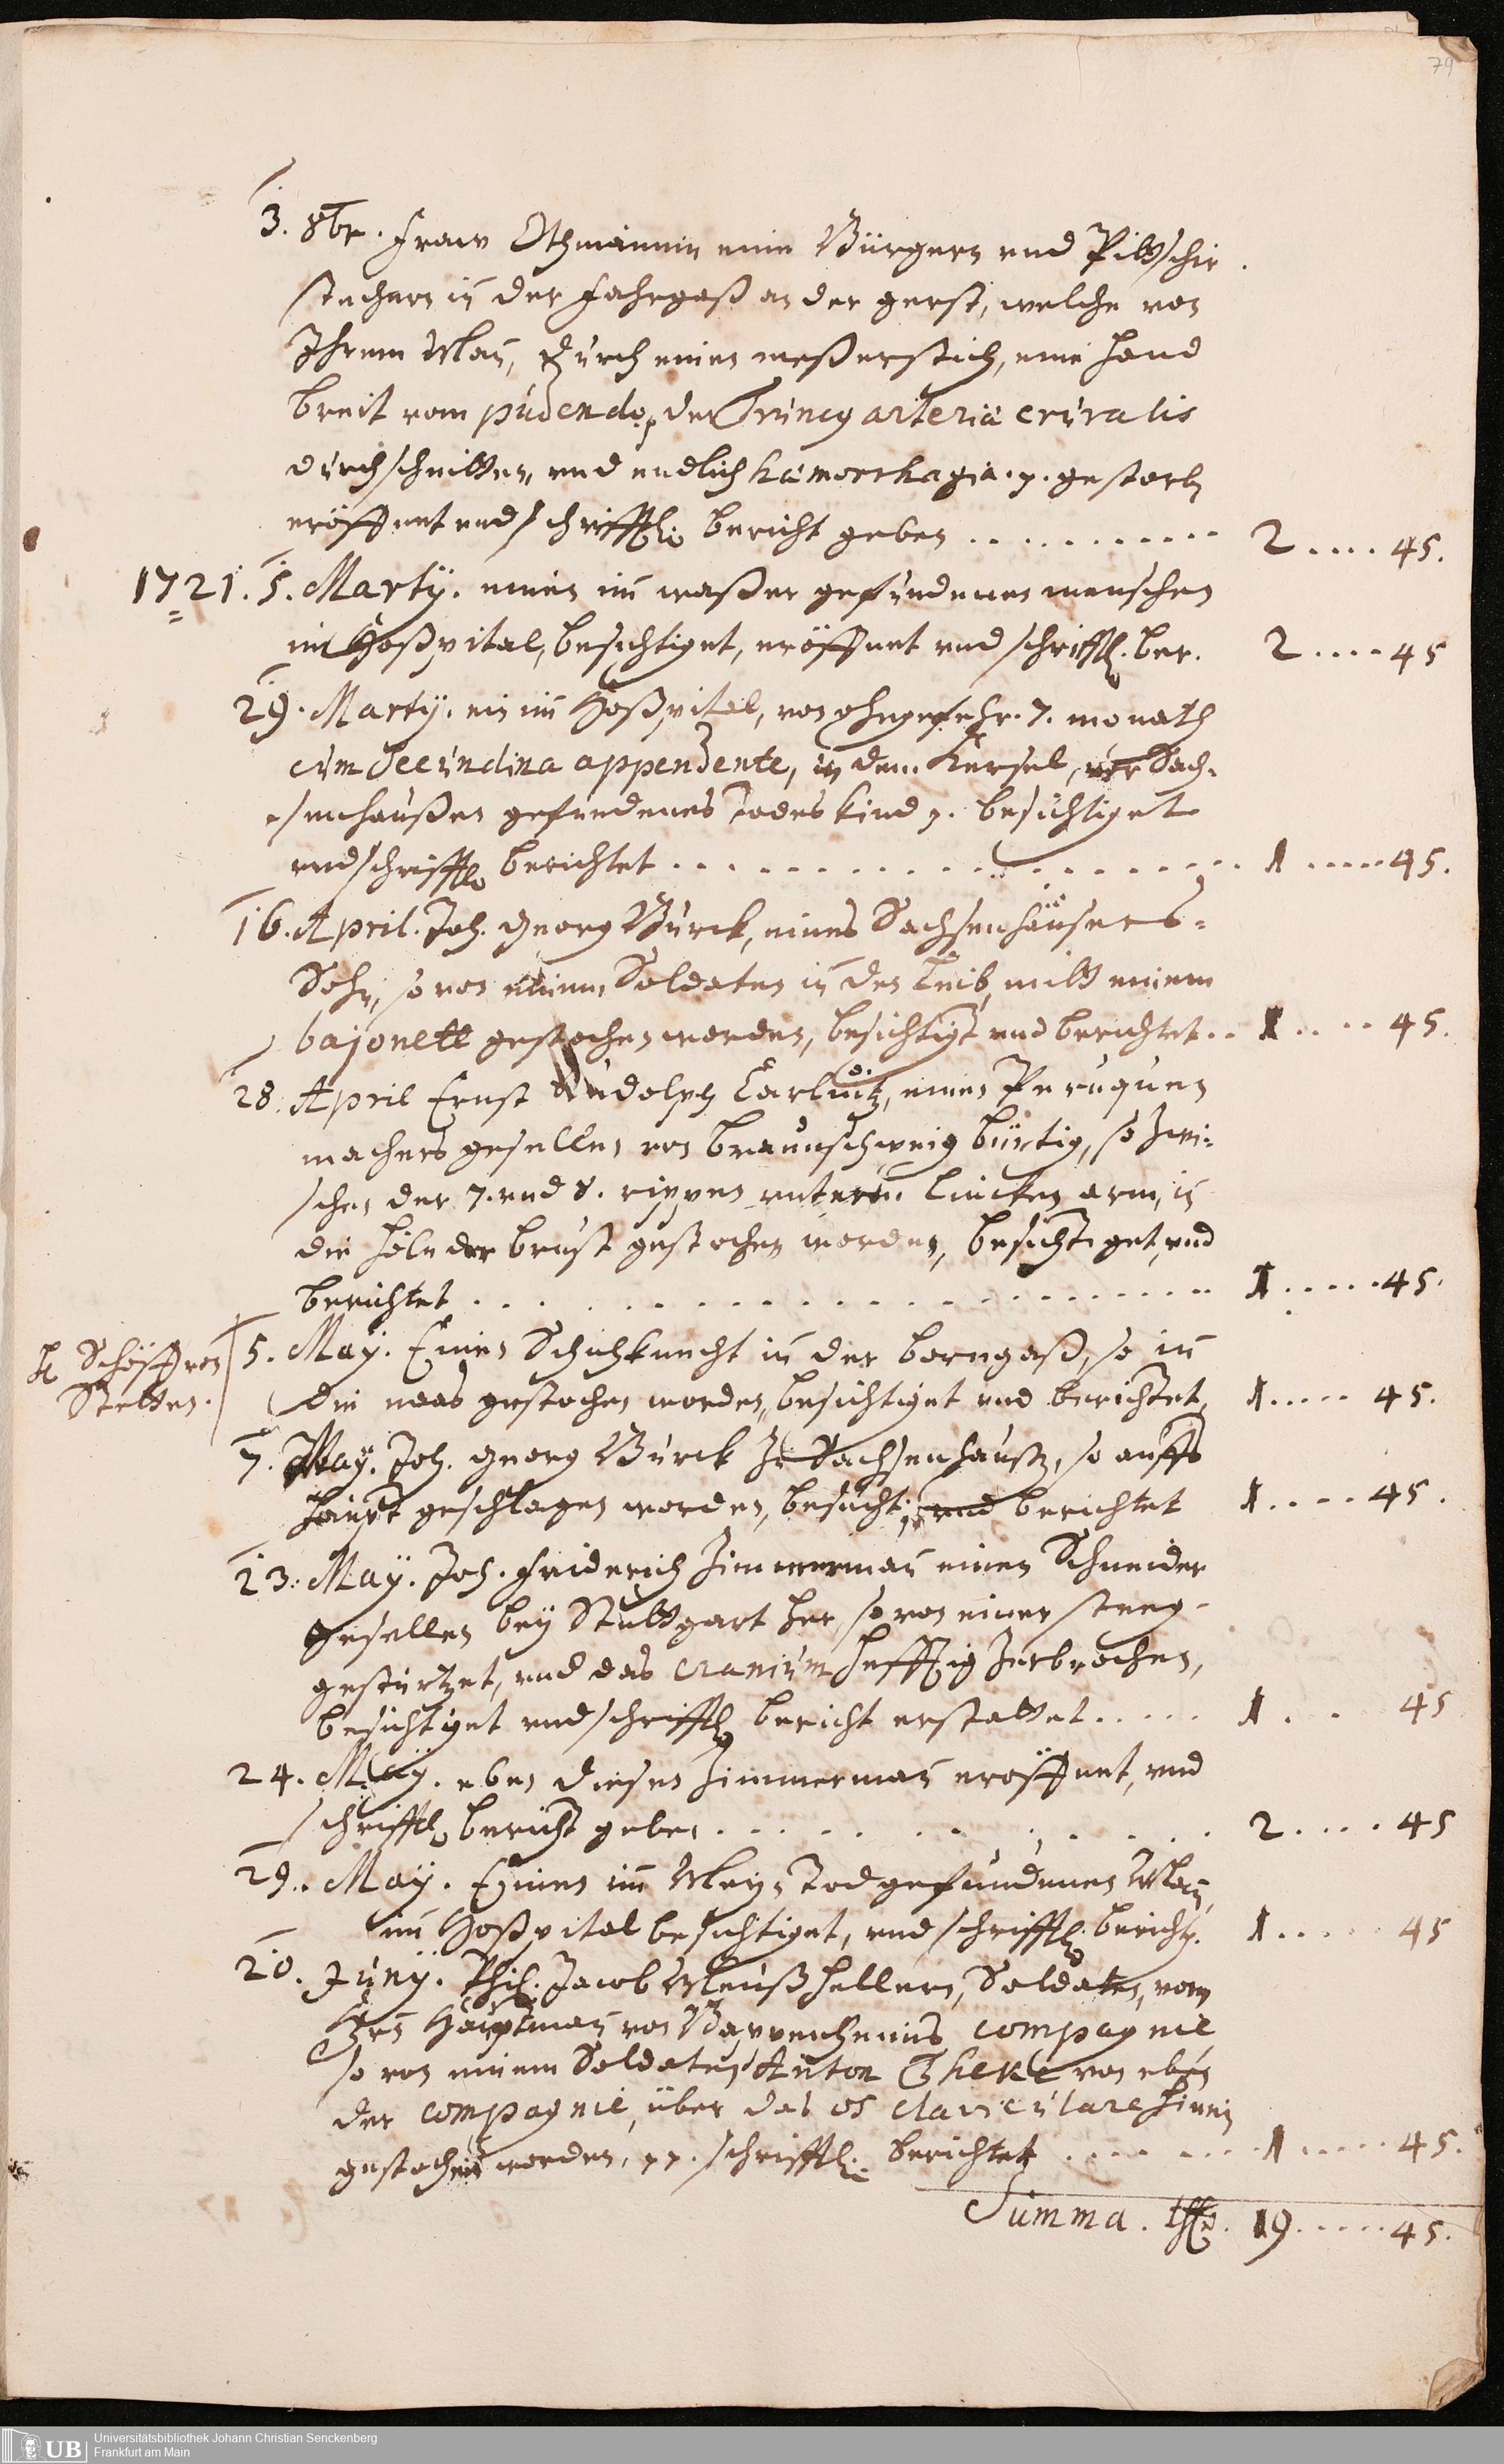 79
3. 8br. Fraw Othmännin eine Bürgern und Pittschir
stechern in der Fahrgaß an der gerst, welche von
Ihrem Man, durch einen meßerstich, eine hand
breit vom pudendo, der Truncq arteria cruralis
durchschnitten, und endlich hämorrhagia. p. gestorbn
eröffnet und schrifftl. bericht geben ........... 2 .... 45.
1721. 5. Marty. einen im waßer gefundenen menschen
im Hoßpital, besichtiget, eröffnet und schrifftl. ber. 2 .... 45
29. Marty. ein im Hoßpital, von ohngefehr. 7. monath
cum Secundina appendente, in dem Kersel, Sach-
senhaußen gefundenes Todes kind p. besichtiget
und schrifftl. berichtet .................. 1 ..... 45.
16. April. Joh. Georg Bürck, eines Sachsenhäusers
Sohn, so von einem Soldaten in den Leib mitt einem
bajonett gestochen worden, besichtigt und berichtet .. 1 .... 45.
28. April Ernst Rudolph Carlwitz, einen Peruquen
machers gesellen von braunschweig bürtig, so zwi-
schen der 7. und 8. rippen unterm lincken arm, in
die höle der brust gestochen worden, besichtiget, und
berichtet .................... 1 ..... 45.
H Schöff von
Stetten.
5. May. Einen Schuhknecht in der borngaß, so in
die naas gestochen worden, besichtiget und berichtet, 1 ..... 45.
7. May. Joh. Georg Bürck zu Sachsenhaußn, so auffs
haupt geschlagen worden, besucht, und berichtet 1 .... 45.
23. May. Joh. Friderich Zimmerman einen Schneider
gesellen bey Stuttgart her, so von einer steeg
gestürtzet, und das cranium hefftig zerbrochen,
besichtiget und schrifftl. bericht erstattet ..... 1 . . 45
24. May. eben diesen Zimmerman eröffnet, und
schrifftl. bericht geben ............ 2 .... 45
29. May. Einen im Meyn Todgefundenen Man,
im Hoßpital besichtiget, und schrifftl. bericht. 1 .... 45
20. Juny. Phil. Jacob Meußhellern, Soldaten, vom
Hrn Hauptman von Bappenheimis compagnie
so von einem Soldaten Anton von eben
der compagnie, über das os claviculare hinein
gestochen worden, pp. schrifftl. berichtet ....... 1 ..... 45.
Summa. 19 ..... 45.
UB Universitätsbibliothek Johann Christian Senckenberg
Frankfurt am Main